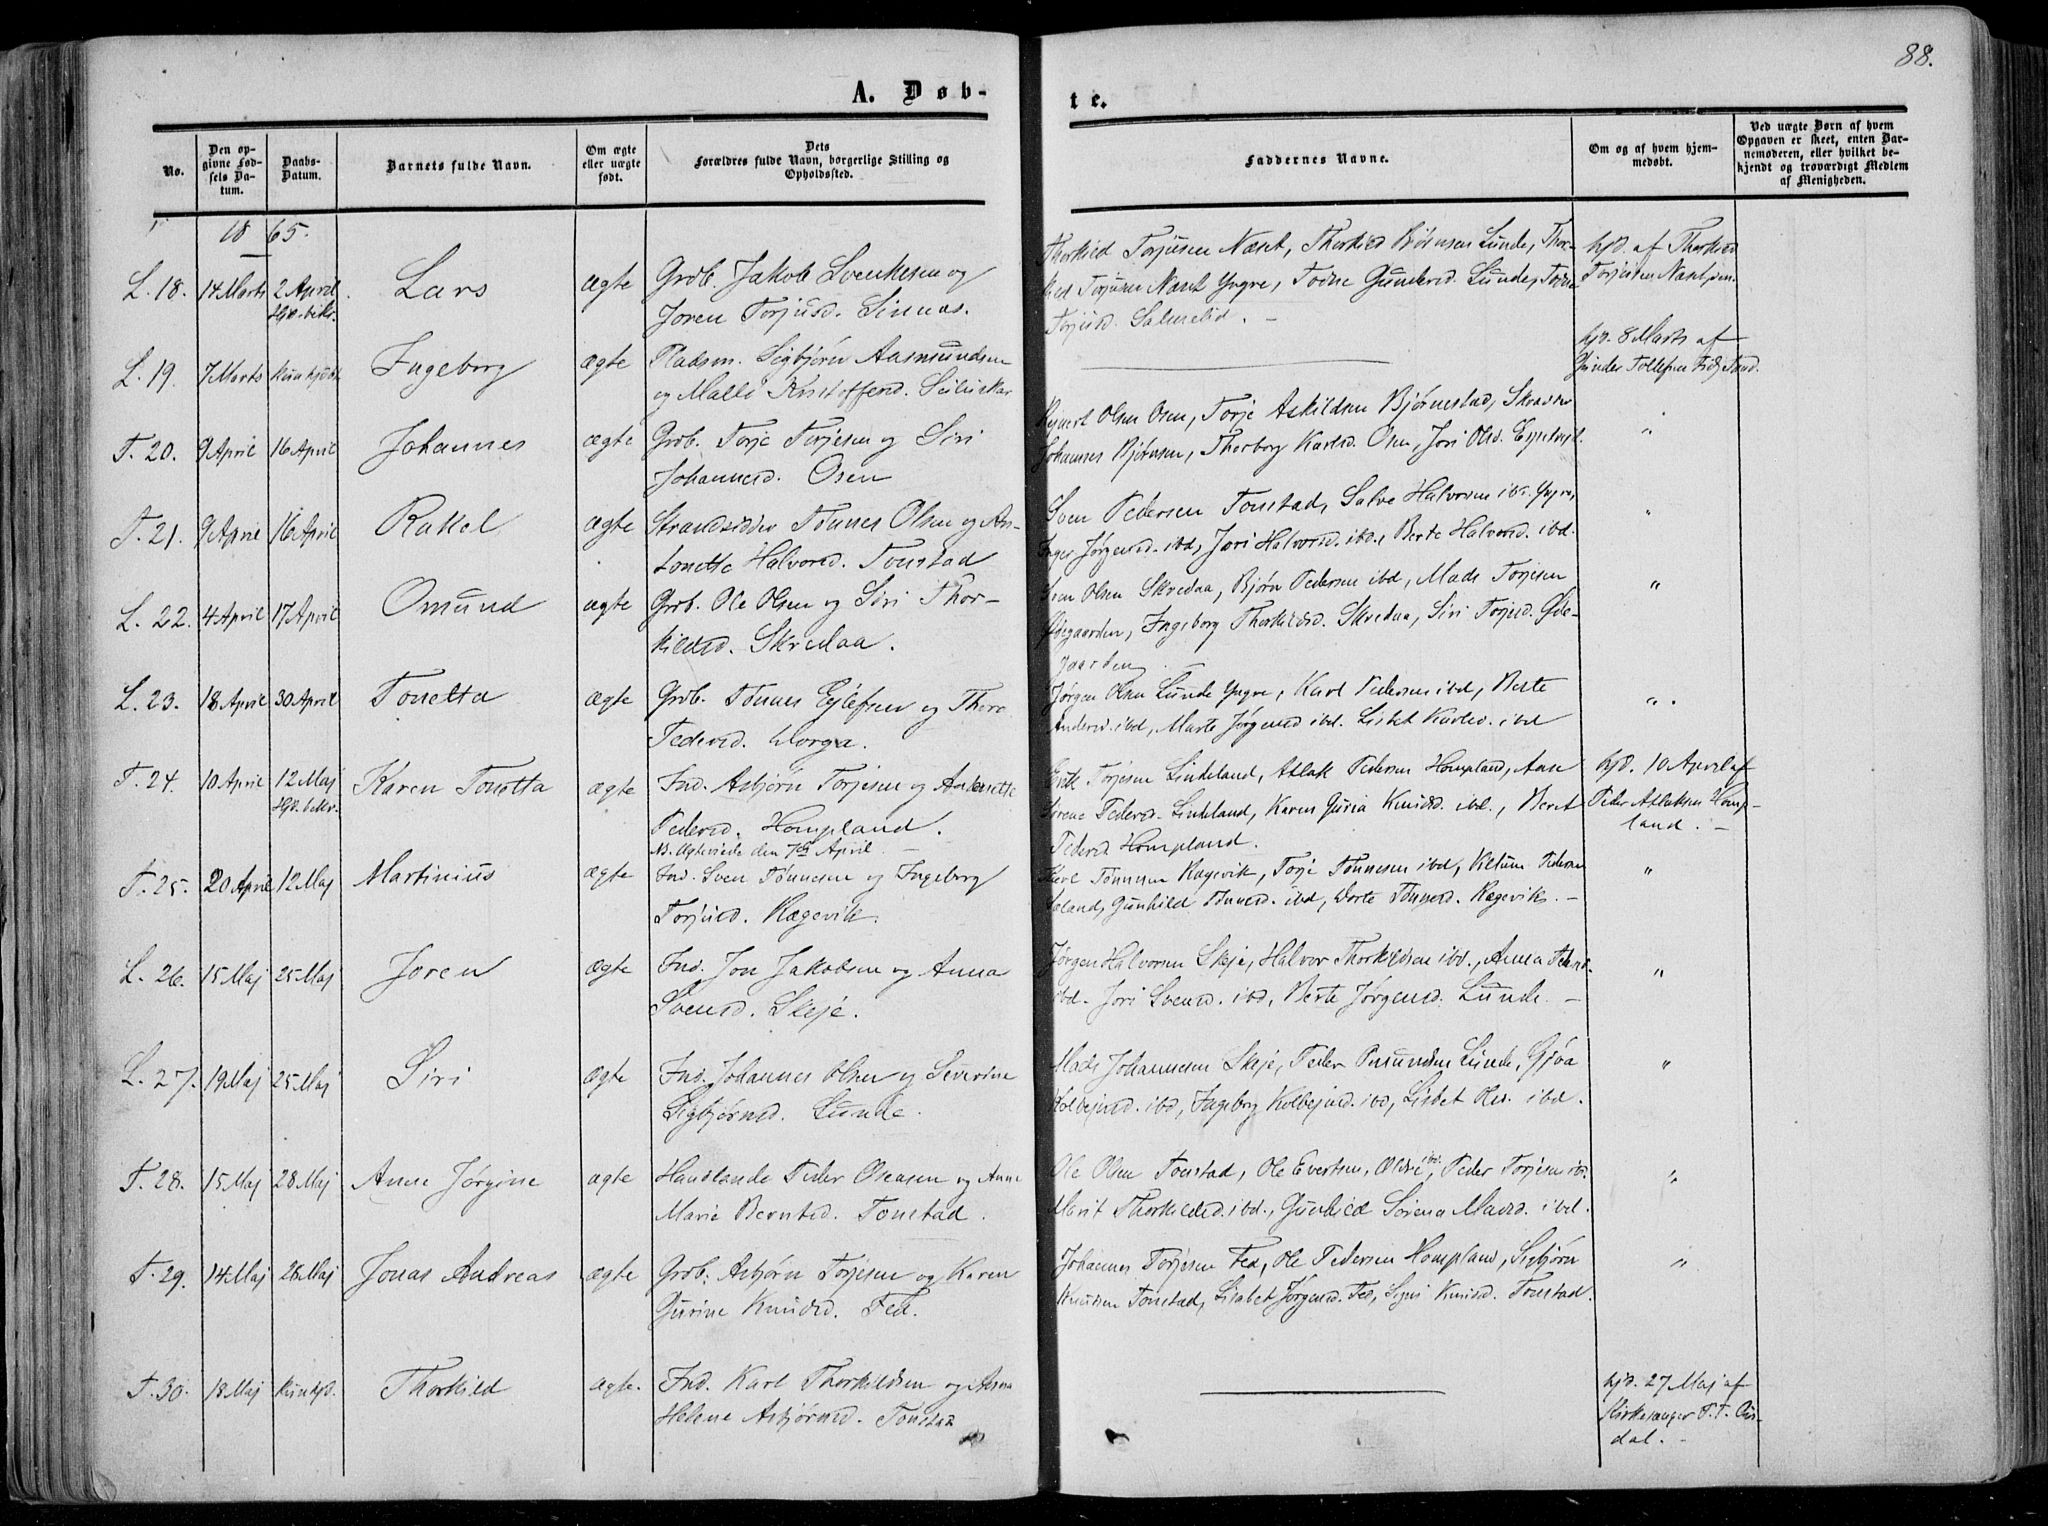 88.
A. Døb-
te.
No.
Den opgivne Fødsels Datum.
Daabs-Datum.
Barnets fulde Navn.
Om ægte eller uægte født.
Dets Forældres fulde Navn, borgerlige Stilling og Opholdssted.
Faddernes Navne.
Om og af hvem hjemmedøbt.
Ved uægte Børn af hvem Opgaven er skeet, enten Barnemoderen, eller hvilket bekjendt og troværdigt Medlem af Menigheden.
18 65.
L. 18. 14 Marts 2 April Lars ægte Grdb. Jakob Svenkesen og
Joren Torjusd. Sinnes.
Thorkild Torjusen Næset, Thorkild Lunde, Thor-
kild Torjusen Næset Yngre, Todne Gunders. Lunde, Todne
Torjusd. Salmelid. –
hjd. af Thorkild
Torjusen Næset, sen.
L. 19. 7 Marts kun hjdbt Ingeborg ægte Pladsm. Sigbjørn Aasmundsen
og Malle Kristoffersd.
hjd. 8 Marts af
Gunder Tollefsen
T. 20. 9 April 16 April Johannes ægte Grdb. Torje Torjesen og Siri
Johannesd. Osen
Olsen Osen, Torje Askildsen Bjørnestad,
Johannes Bjørnsen, Thorborg Karlsd. Osen, Jori Olsd.
"
T. 21. 9 April 16 April Rakel ægte Strandsidder Tønnes Olsen og An-
tonette Halvorsd. Tonstad
Sven Pedersen Tonstad, Salve Halvorsen ibd. Yngre,
Inger Jørgensd. ibd, Jori Halvorsd. ibd., Berte Halvorsd. ibd.
"
L. 22. 4 April 17 April Omund ægte Grdb. Ole Olsen og Siri Thor-
kildsd. Skredaa.
Sven Olsen Skredaa, Bjørn Pedersen ibd, Mads Torjesen
Ødegaarden, Ingeborg Thorkildsd. Skredaa, Siri Torjusd. Øde-
gaarden
"
L. 23. 18 April 30 April Tonetta ægte Grdb. Tønnes Ejlefsen og Thore
Pedersd. Dorga.
Jørgen Olsen Lunde Yngre, Karl Pedersen ibd, Berte
Andersd. ibd, Marte Jørgensd ibd. Lisbet Karlsd. ibd
"
T. 24. 10 April 12 Maj Karen Tonetta ægte Ind. Asbjørn Torjesen og Antonette
Pedersd. Hompland.
NB. Ægteviede den 7de April
Erik Torjesen Lindeland, Atlak Pedersen Hompland, Ane
Sørene Pedersd. Lindeland, Karen Guria Knudsd. ibd., Beret
Pedersd Hompland.
hjd. 10 April af
Peder Atlaksen Homp-
land. –
T. 25. 20 April 12 Maj Martinius ægte Ind. Sven Tønnesen og Ingeborg
Torjusd. Rægevik.
Karl Tønnesen Rægevik, Torje Tønnesen ibd, Pedersen
Gunhild Tønnesd. ibd, Dorte Tønnesd. Rægevik. –
"
L. 26. 15 Maj 25 Maj Joren ægte Ind. Jon Jakobsen og Anna
Svensd. Skeje.
Jørgen Halvorsen Skeje, Halvor Thorkildsen ibd., Anna Pedersd.
ibd. Jori Svensd. ibd, Berte Jørgensd. Lunde. –
"
L. 27. 19 Maj 25 Maj Siri ægte Ind. Johannes Olsen og Severine
Sigbjørnsd. Lunde.
Mads Johannesen Skeje, Peder Omundsen Lunde, Gjøa
Kolbejnsd. ibd, Ingeborg Kolbejnsd. ibd, Lisbet Ols. ibd.
"
T. 28. 15 Maj 28 Maj Anne Jørgine ægte Handlende Peder Oseasen og Anne
Marie Berntsd. Tonstad.
Ole Olsen Tonstad, Ole Evertsen, ibd. Peder Torjesen ibd.
Marit Thorkildsd. ibd., Gunhild Sørena Madsd. ibd.
"
T. 29. 14 Maj 28 Maj Jonas Andreas ægte Grdb: Asbjørn Torjesen og Karen
Gurine Knudsd. Fed.
Johannes Torjesen Fed, Ole Pedersen Hompland, Sigbjørn
Knudsen Tonstad, Lisabet Jørgensd. Fed, Knudsd. Tonstad.
"
T. 30. 18 Maj kun hjd. Thorkild ægte. Ind. Karl Thorkildsen og
Helene Asbjørnsd. Tonstad
hjd. 27 Maj af
Kirkesanger T. T.
dal. –